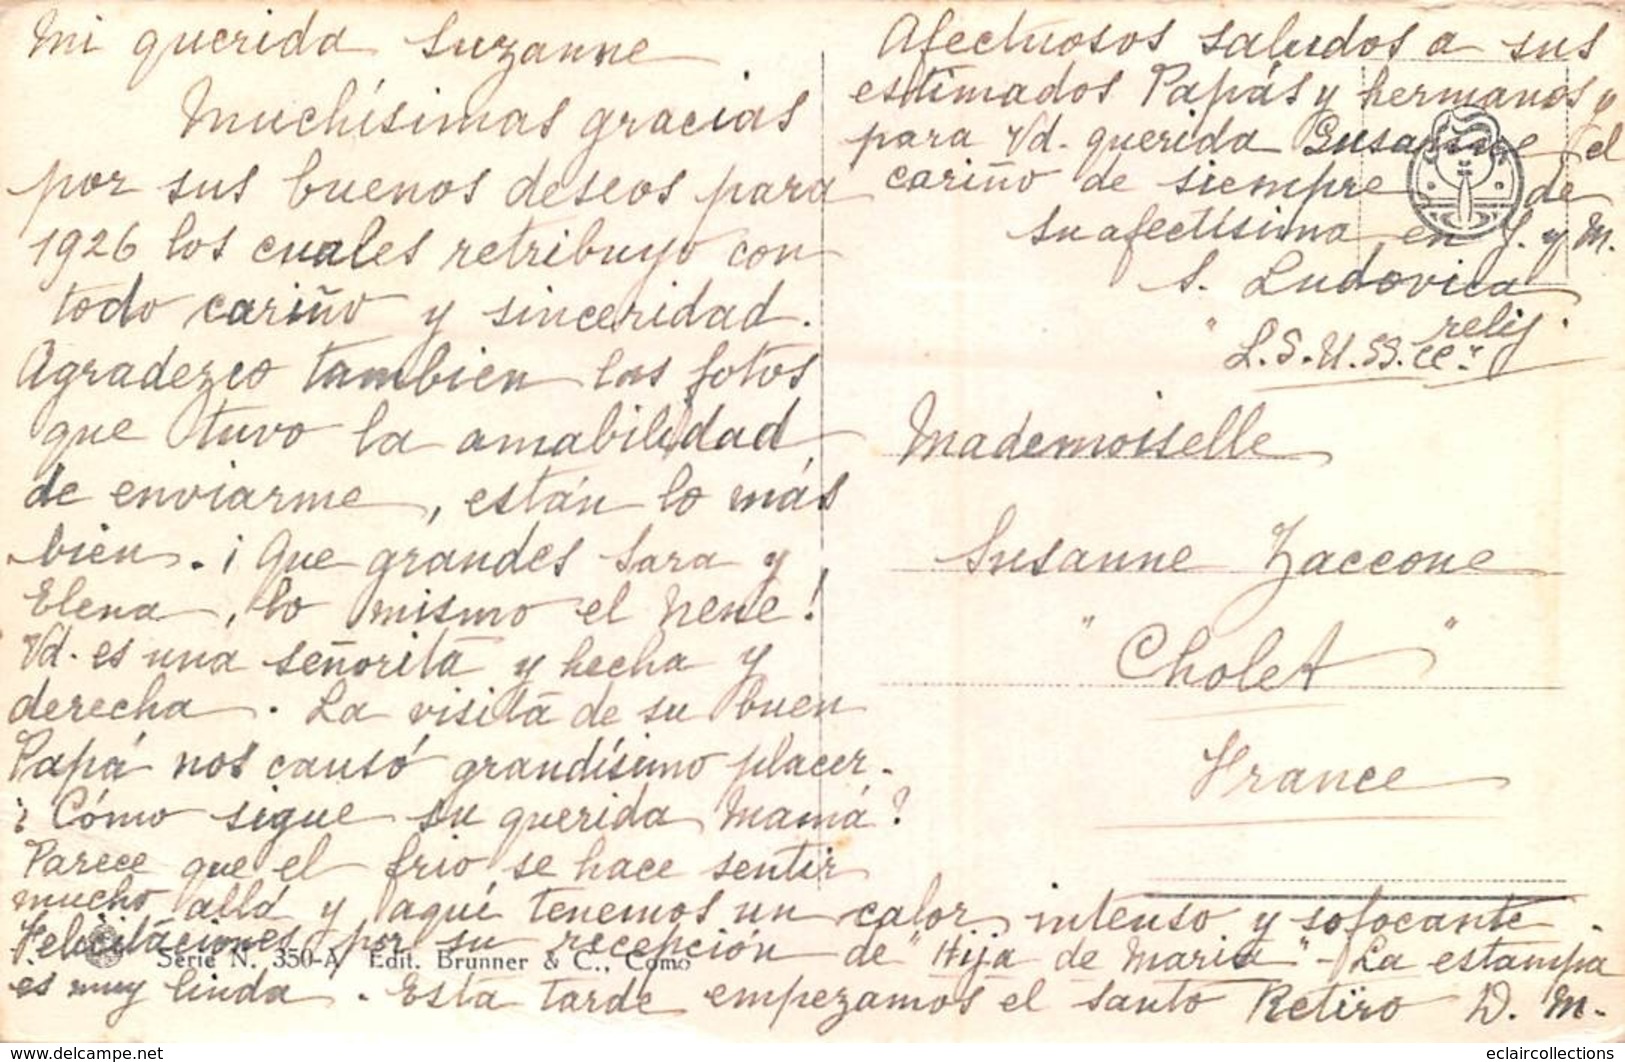 Mi querida Suzanne
Muchísimas gracias
por sus buenos deseos para
1926 los cuales retribuyo con
todo cariño y sinceridad.
Agradezco tambien las fotos
que tuvo la amabilidad
de enviarme, están lo más
bien. ¡Que grandes Sara y
Elena, lo mismo el nene!
Vd. es una señorita y hecha y
derecha. La visita de su buen
Papá nos causó grandísimo placer.
¿Cómo sigue su querida Mamá?
Parece que el frio se hace sentir
mucho allá y aquí tenemos un calor intenso y sofocante.
Felicitaciones por su recepción de "Hija de Maria" - La estampa
es muy linda. Esta tarde empezamos el santo Retiro D. M.
Serie N. 350-A Edit. Brunner & C., Como
Afectuosos saludos a sus
estimados Papás y hermanos y
para Vd. querida Susanne el
cariño de siempre de
su afectísima en J. y M.
S. Ludovica
relig.
L. S. U. SS. CC.
Mademoiselle
Susanne Zaccone
"Cholet"
France
eclaircollections